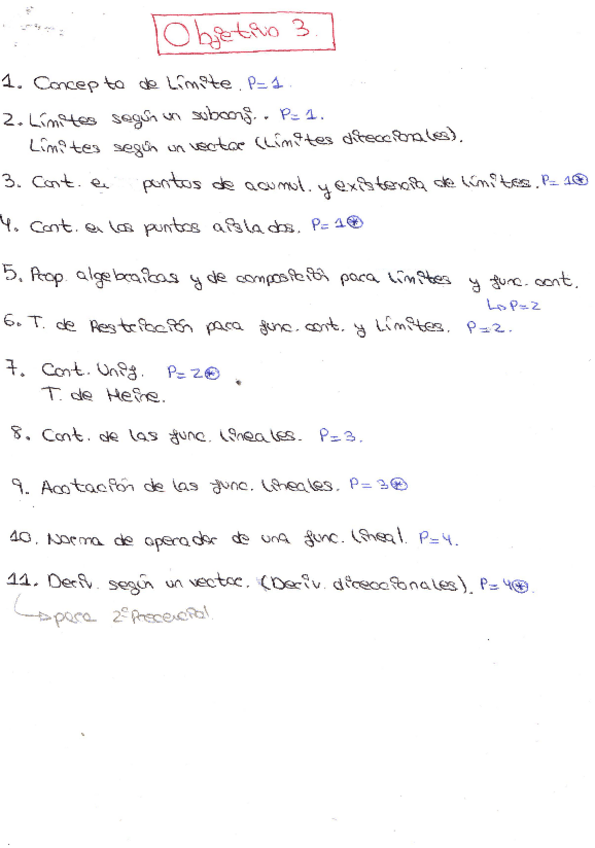 Objetivo 3.
1. Concepto de Límite. P=1.
2. Límites según un subconj.. P=1.
Límites según un vector (Límites direccionales).
3. Cont. en puntos de acumul. y existencia de límites. P=1*
4. Cont. en los puntos aislados. P=1*
5. Prop. algebraicas y de composición para límites y func. cont.
↳ P=2
6. T. de Restricción para func. cont. y límites. P=2.
7. Cont. Unif. P=2*
T. de Heine.
8. Cont. de las func. lineales. P=3.
9. Acotación de las func. lineales. P=3*
10. Norma de operador de una func. lineal. P=4.
11. Deriv. según un vector. (Deriv. direccionales). P=4*.
↳ para 2º